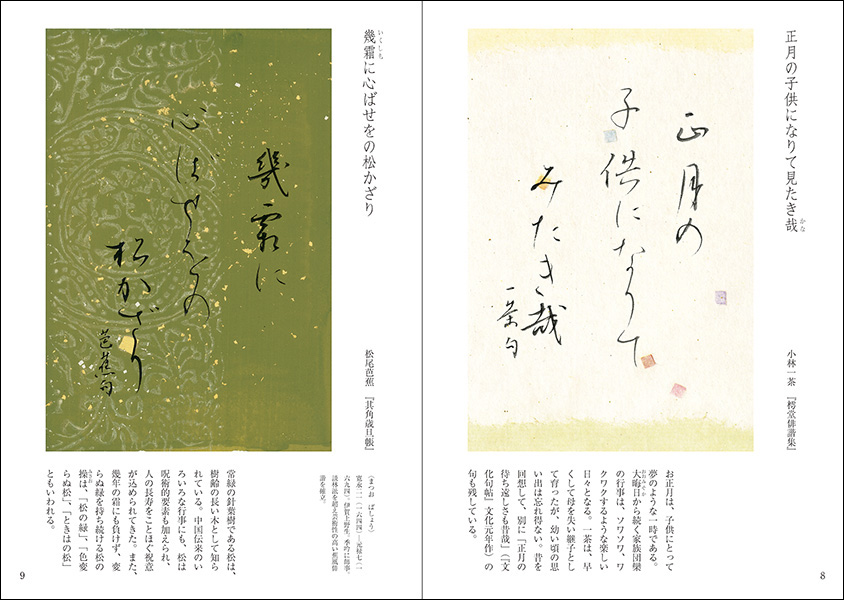 正月の子供になりて見たき哉
かな
小林一茶 『樗堂俳諧集』
正月の
子供になりて
みたき哉
一茶句
お正月は、子供にとって
夢のような一時である。
大晦日から続く家族団欒
おおみそか
の行事は、ソワソワ、ワ
クワクするような楽しい
日々となる。一茶は、早
くして母を失い継子とし
て育ったが、幼い頃の思
い出は忘れ得ない。昔を
回想して、別に「正月の
待ち遠しさも昔哉」(『文
化句帖』文化元年作)の
句も残している。
8
幾霜に心ばせをの松かざり
いくしも
松尾芭蕉 『其角歳旦帳』
幾霜に
心ばせをの
松かざり
芭蕉句
(まつお ばしょう)
寛永二一(一六四四)―元禄七(一
六九四)。伊賀上野生。季吟に師事。
談林派を超え芸術性の高い蕉風俳
諧を確立。
常緑の針葉樹である松は、
樹齢の長い木として知ら
れている。中国伝来のい
ろいろな行事にも、松は
呪術的要素も加えられ、
人の長寿をことほぐ祝意
が込められてきた。また、
幾年の霜にも負けず、変
らぬ緑を持ち続ける松の
操は、「松の緑」、「色変
みさお
らぬ松」、「ときはの松」
ともいわれる。
9